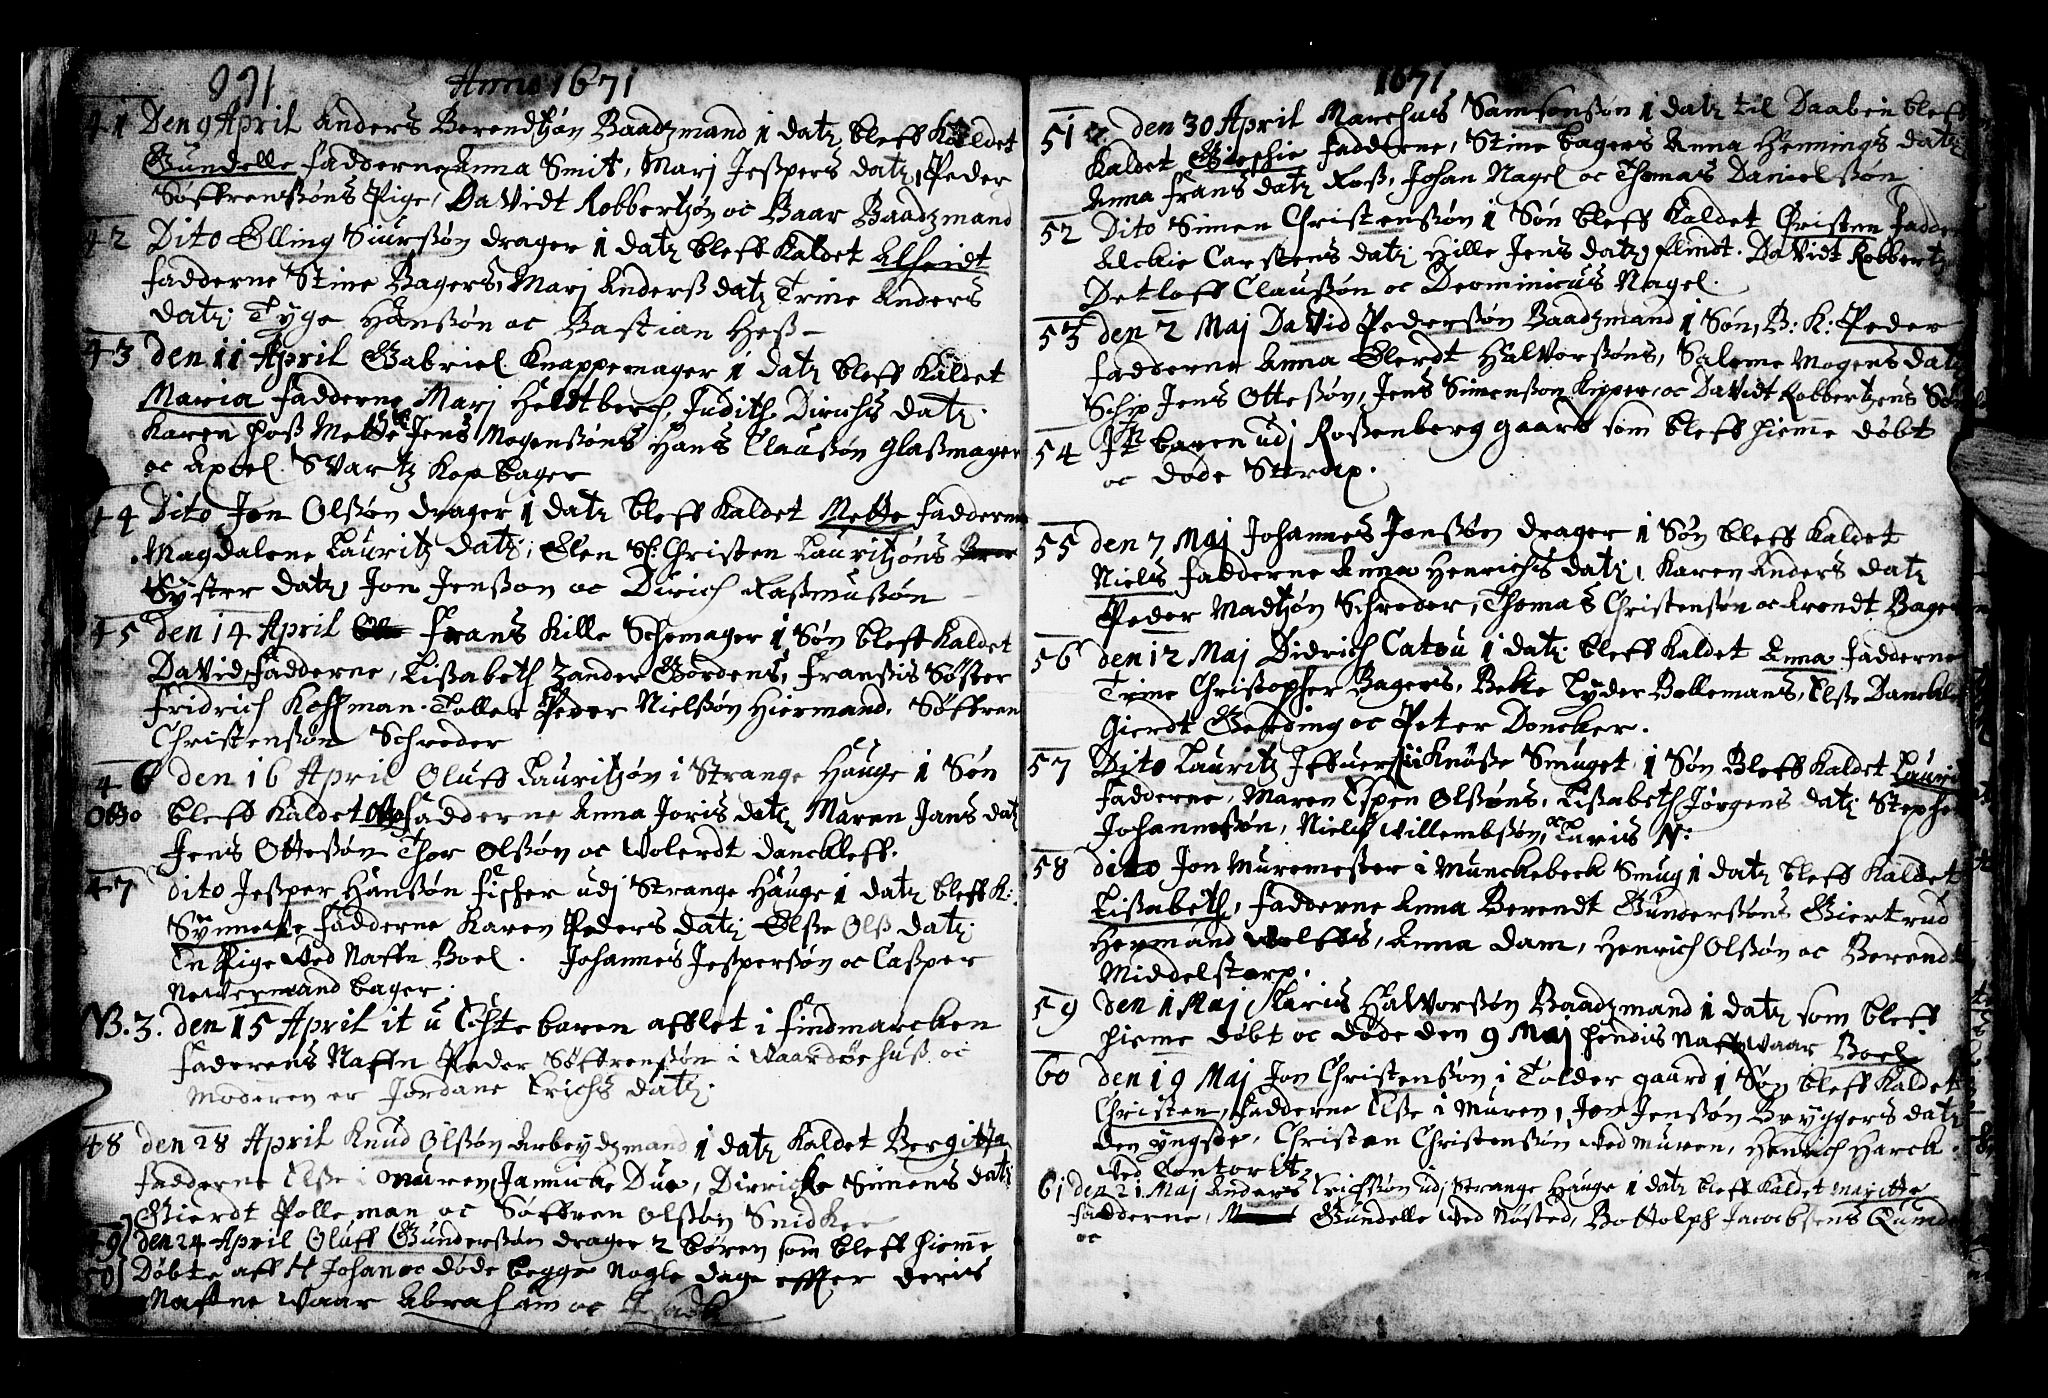 Anno 1671
41 Den 9 April Anders Berendtzøn Baadzmand 1 datz bleff Kaldet
Gundelle fadderne Anna Smit, Marj Jeßpers datz, Peder
Søffrenßøns Pige, Davidt Robbertzøn oc Baar Baadzmand
42 Dito Elling Siurßøn drager 1 datz bleff Kaldet Alheidt
fadderne Stine Bagers, Marj Anderß datz Trine Anders
datz. Tyge Hanßøn oc Bastian Heß
43 den 11 April Gabriel Knappemager 1 datz bleff Kaldet
Maria fadderne Marj Heldtberch, Judith Dirichs datz.
Karen hoß Mette Jens Mogenßøns Hans Claußøn Glaßmager
oc Axel Svartz Kopbager
44 Dito Jon Olßøn drager 1 datz bleff Kaldet Mette fadderne
Magdalene Lauritz datz, Elen Sl: Christen Lauritzøns
Syster datz, Jon Jenßøn oc Dirich Raßmußøn
45 den 14 April Frans Kille Schomager 1 Søn bleff Kaldet
David, fadderne, Lißabeth Zander Gordens, Franßis Søster
Fridrich Koffman. Toller Peder Nielßøn Hiermand. Søffren
Christenßøn Schreder
46 den 16 April Oluff Lauritzøn i Strange Hauge 1 Søn
Otto bleff Kaldet Otto fadderne Anna Joris datz Maren Jans datz
Jens Otteßøn Thor Olßøn oc Wolerdt Danckleff.
47 dito Jeßper Hanßøn fischer udj Strange Hauge 1 datz bleff K:
Synneve fadderne Karen Peders datz Elße Olß datz.
En Pige ved Naffn Boel. Johannes Jeßperßøn oc Caßper
Newermand bager.
NB. 3. den 15 April it u Echte baren afflet i Findmarcken
Faderens Naffn Peder Søffrenßøn i Waardøehuß oc
Moderen er Jordane Erichs datz.
48 den 28 April Knud Olßøn Arbeydzmand 1 datz Kaldet Bergitta
fadderne Elße i Muren, Jannicke Due, Dirricke Simens datz
Gierdt Polleman oc Søffren Olßøn Snidker
49 den 24 April Oluff Gunderßøn drager 2 børen som bleff hieme
50 Døbte aff H Johan oc døde begge Nogle dage effter deris
Naffne vaar Abraham oc Isack
1671
51 den 30 April Marchus Samsonßøn 1 datz til Daaben bleff
Kaldet fadderne, Stine bagers Anna Hennings datz
Anna Frans datz Roß, Johan Nagel oc Thomas Danielßøn
52 Dito Simen Christenßøn 1 Søn bleff Kaldet Christen fadder
Alckie Carstens datz, Hille Jens datz, flindt. Davidt Robbertz
Detloff Claußøn oc Dominicus Nagel.
53 den 2 Maj David Pederßøn Baadzmand 1 Søn, B: K: Peder
fadderne Anna Elerdt Halvorßøns, Salome Mogens datz
Schip Jens Otteßøn, Jens Simenßon Kipper, oc Davidt Robbertzens Søn
54 It bagen udj Roßenberg gaard som bleff hieme døbt
oc døde Sterax.
55 den 7 Maj Johannes Jonßøn drager 1 Søn bleff Kaldet
Niels fadderne Anna Henrichs datz, Karen Anders datz
Peder Madtzøn Schreder, Thomas Christenßøn oc Arendt Bager
56 den 12 Maj Didrich Catou 1 datz bleff Kaldet Anna fadderne
Trine Christopher Bagers, Beke Lyder Bollemans, Elße Danckle
Gierdt Gerding oc Peter Doncker.
57 Dito Lauritz Iffuerß i Knøße Smuget 1 Søn Bleff Kaldet Lauri
fadderne, Maren Espen Olßøns, Lißabeth Jørgens datz Stephe
Johanneßøn, Niels Willembßøn, oc Laris N:
58 dito Jon Muremester i Munckebeck Smug 1 datz bleff Kaldet
Lißabeth, fadderne Anna Berendt Gunderßøns Giertrud
Hermand Wolffs, Anna Dam, Henrich Olßøn oc Berendt
Middelstorp.
59 den 1 Maj Laris Halvorßøn Baadzmand 1 datz som bleff
hieme døbt oc døde den 9 Maj hendis Naffn vaar Boel
60 den 19 Maj Jon Christenßøn i Tolder gaard 1 Søn bleff Kaldet
Christen, fadderne Elße i Muren, Jon Jenßøn Bryggers datz
den yngste, Christen Christenßøn ved muren, Henrich Harck
ved Contorit,
61 den 21 Maj Anders Erichßøn udj Strange Hauge 1 datz bleff Kaldet Maritte
fadderne, Gundelle ved Nøsted, Bottolph Jacobsens Quinde
oc